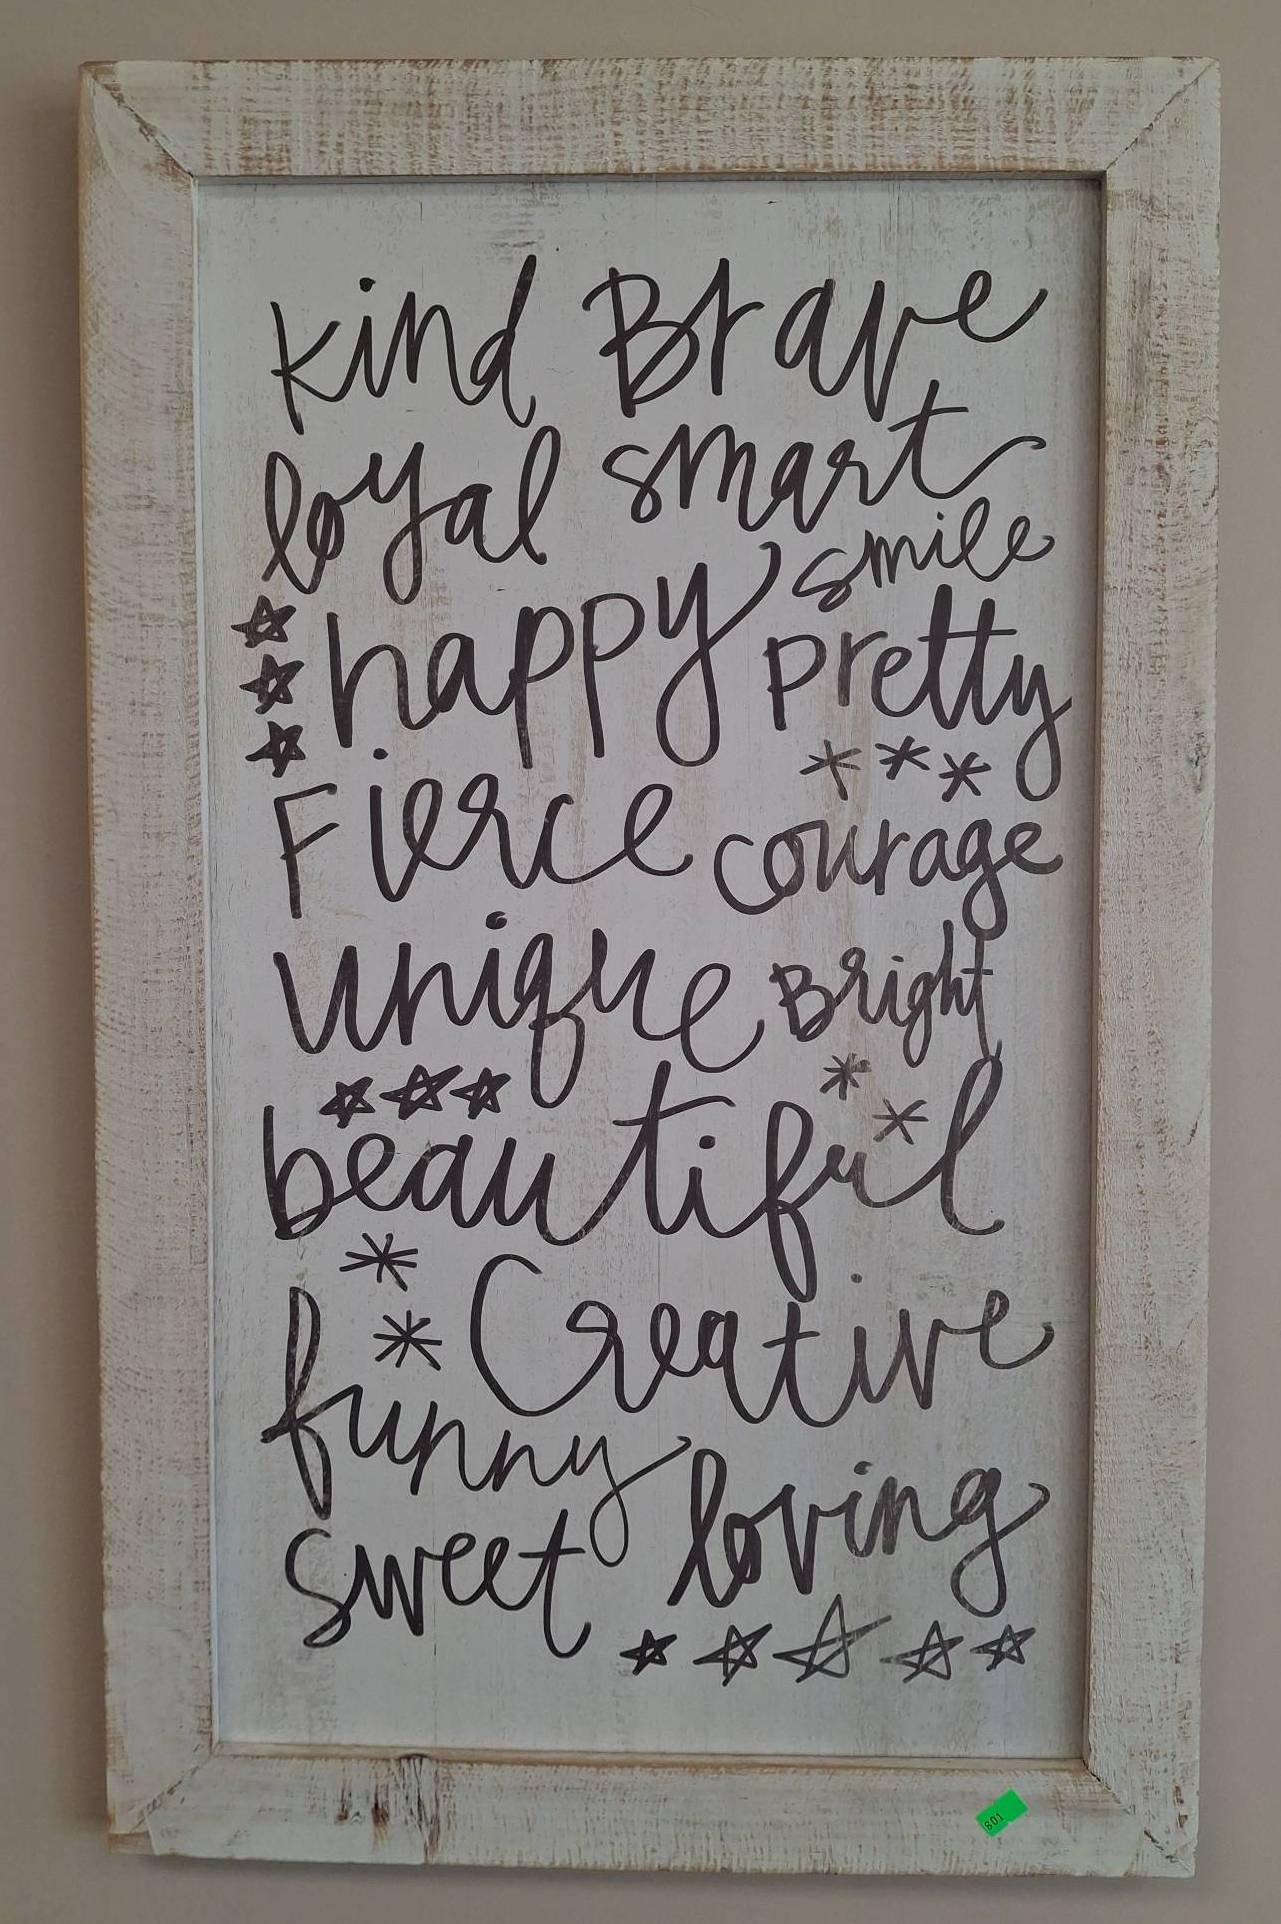 kind Brave
loyal smart
smile
happy pretty
Fierce courage
unique Bright
beautiful
Creative
funny
loving
sweet
801